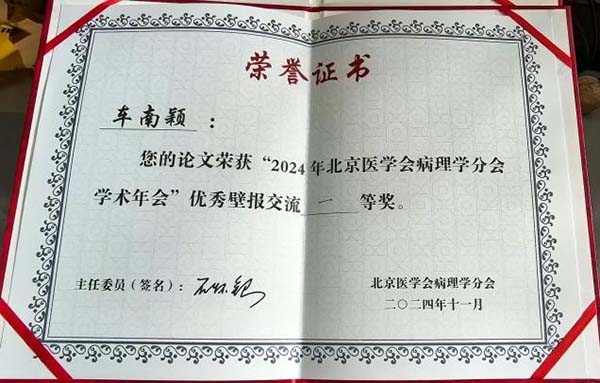 荣誉证书
车南颖：
您的论文荣获“2024年北京医学会病理学分会
学术年会”优秀壁报交流一等奖。
主任委员（签名）：
北京医学会病理学分会
二〇二四年十一月